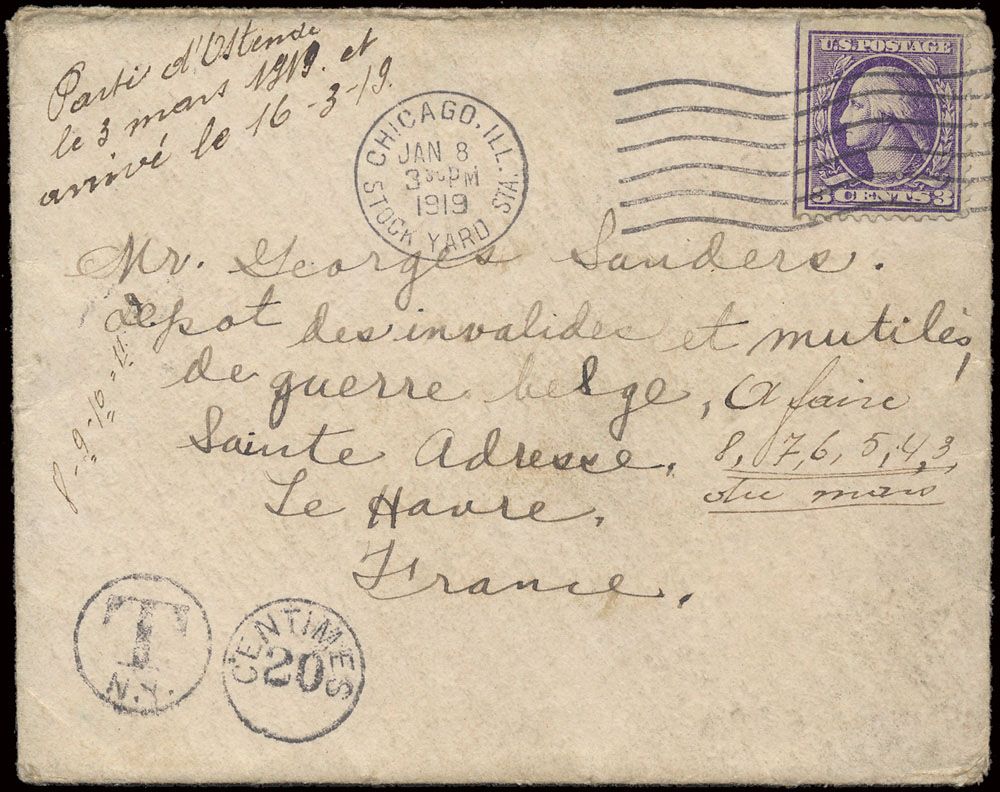 Parti d'Ostende
le 3 mars 1919. et
arrivé le 16-3-19.
CHICAGO, ILL.
JAN 8
3 30 PM
1919
STOCK YARD STA.
U.S. POSTAGE
3 CENTS 3
Mr. Georges Sanders.
Depot des invalides et mutilés,
de guerre belge,
Sainte Adresse.
Le Havre.
France.
A faire
8, 7, 6, 5, 4, 3,
du mars
T
N.Y.
CENTIMES
20